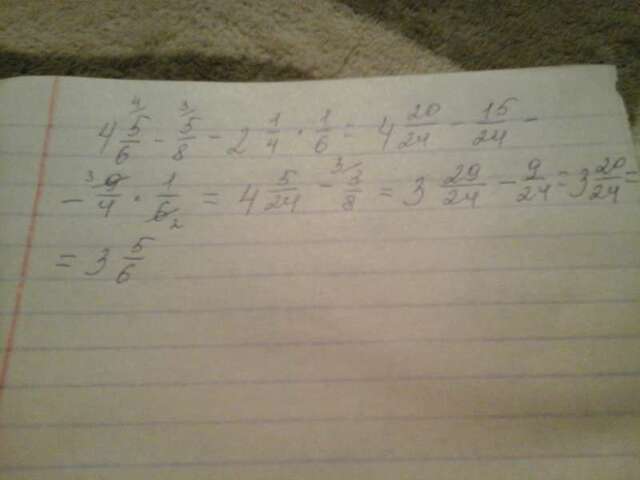 4 5/6 - 5/8 - 2 1/4 · 1/6 = 4 20/24 - 15/24 -
- 9/4 · 1/6 = 4 5/24 - 3/8 = 3 29/24 - 9/24 = 3 20/24 =
= 3 5/6